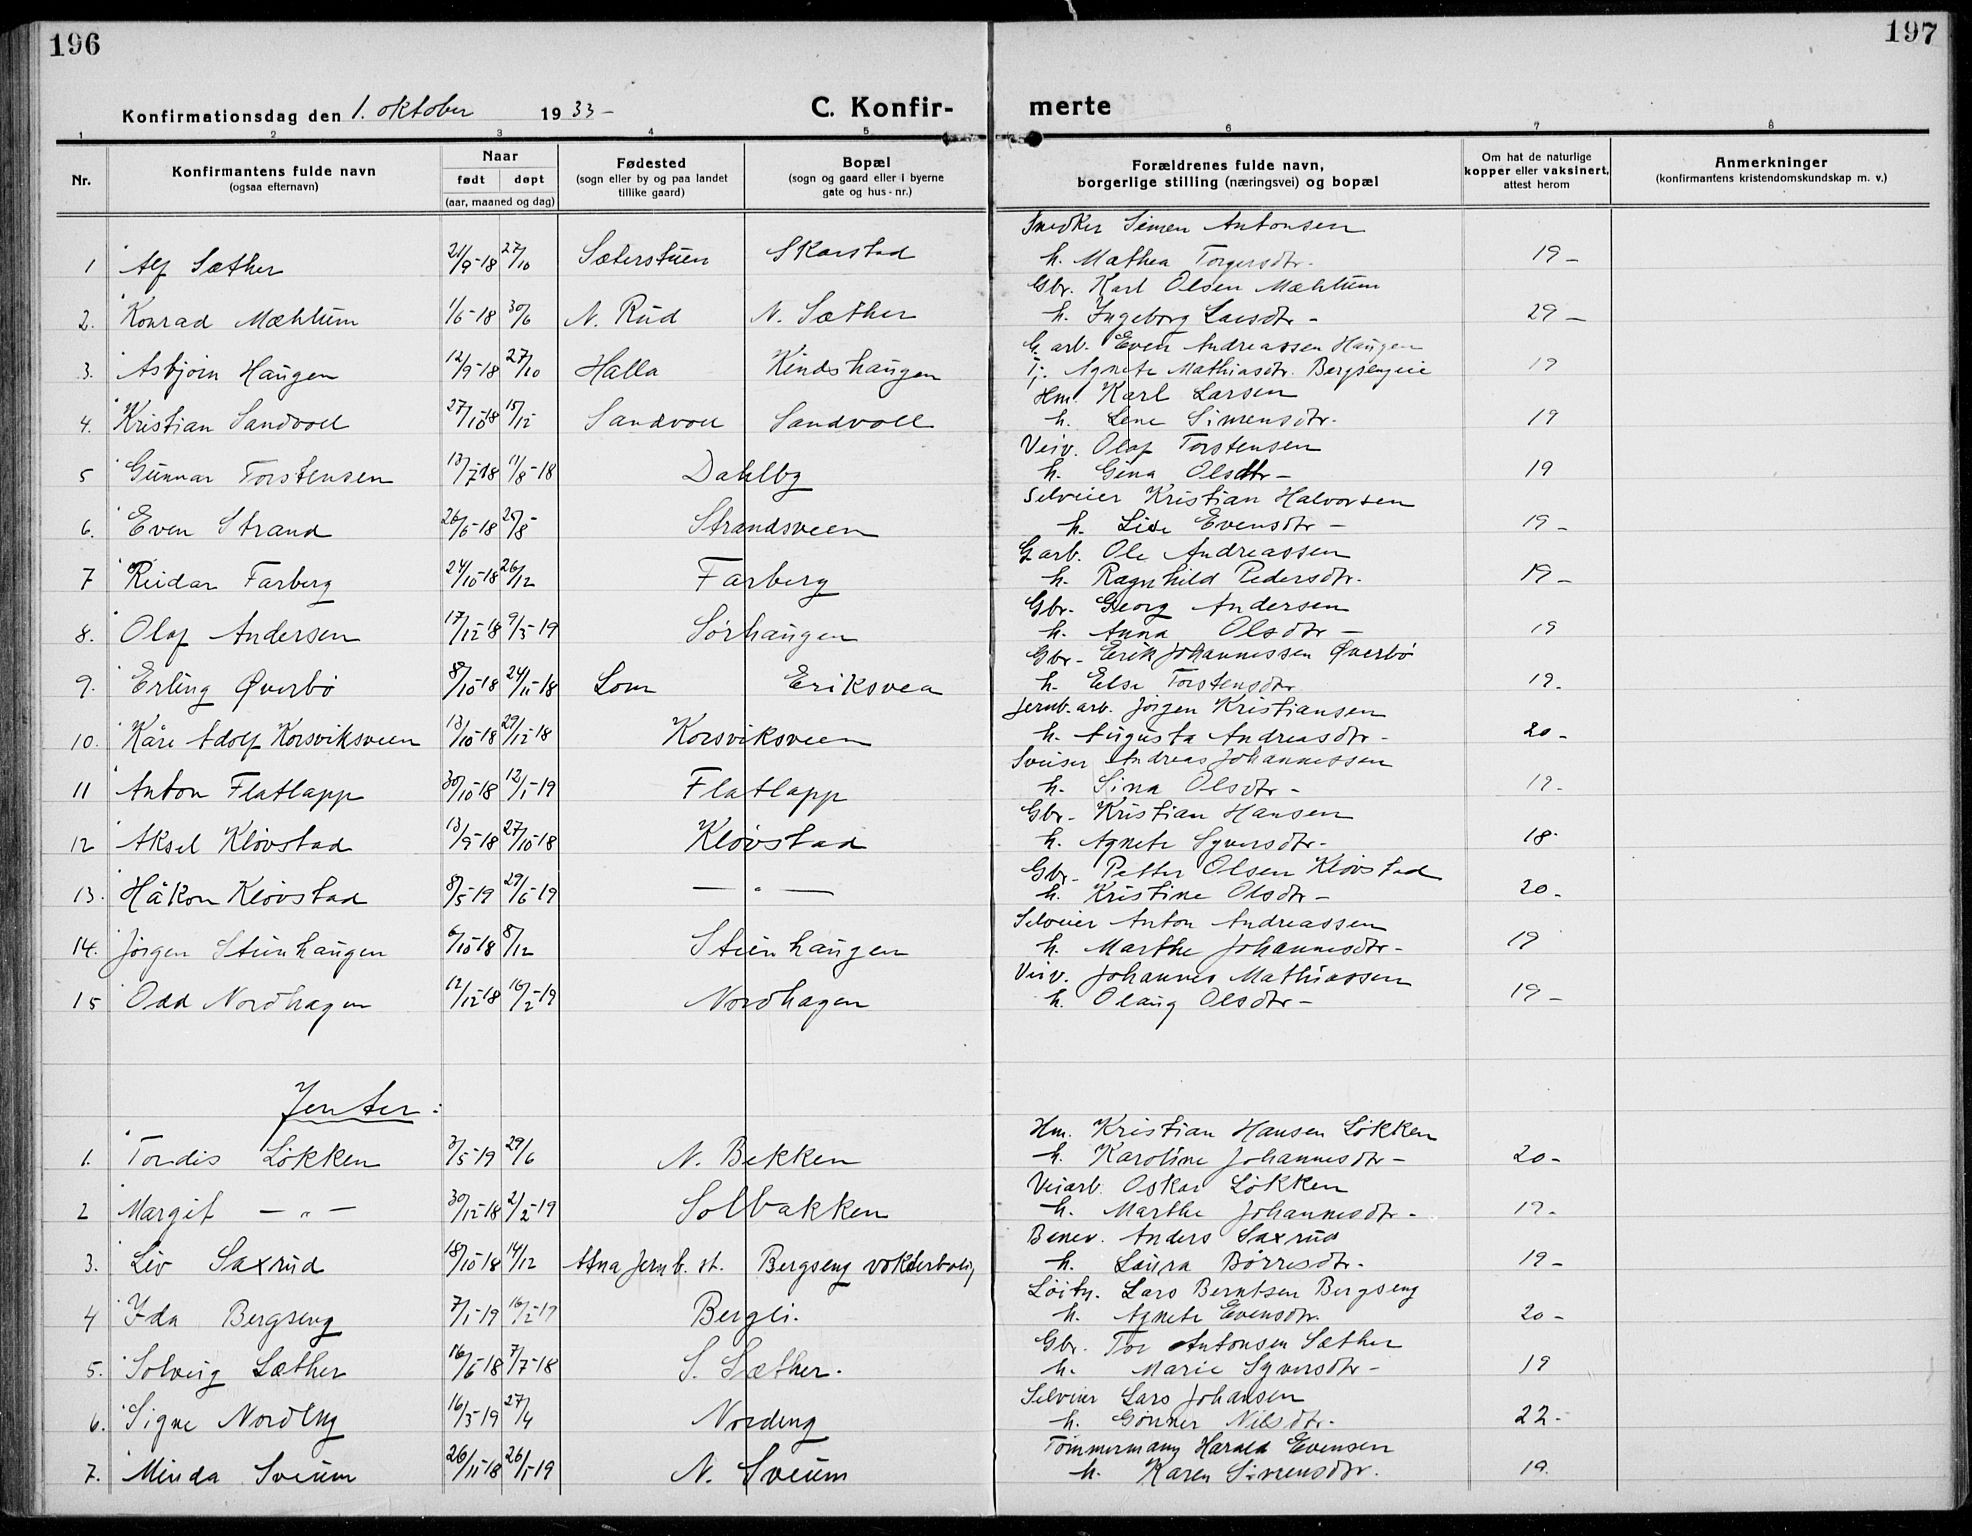 196
197
Konfirmationsdag den 1. oktober 1933 -
C. Konfir-
merte
1 2 3 4 5 6 7 8
Nr.
Konfirmantens fulde navn
(ogsaa efternavn)
Naar
født døpt
(aar, maaned og dag)
Fødested
(sogn eller by og paa landet
tillike gaard)
Bopæl
(sogn og gaard eller i byerne
gate og hus-nr.)
Forældrenes fulde navn,
borgerlige stilling (næringsvei) og bopæl
Om hat de naturlige
kopper eller vaksinert,
attest herom
Anmerkninger
(konfirmantens kristendomskundskap m. v.)
Snedker Simen Antonsen
1 Alf Sæther 21/9-18 27/10 Sæterstuen Skarstad h. Mathea Torgersdtr. 19 -
Gbr. Karl Olsen Mæhlum
2. Konrad Mæhlum 1/6-18 30/6 N. Rud N. Sæther h. Ingeborg Larsdtr - 29 -
G. arb. Even Andreassen Haugen
3. Asbjörn Haugen 12/9-18 27/10 Halla Kindshaugen Tj. Agnete Mathiasdtr. Bergsengeie 19
Hm. Karl Larsen
4. Kristian Sandvoll 27/10-18 15/12 Sandvoll Sandvoll h. Lene Simensdtr. 19
Veiv. Olaf Torstensen
5 Gunnar Torstensen 13/7-18 11/8-18 Dahlby h. Gina Olsdtr - 19
Selveier Kristian Halvorsen
6. Even Strand 26/6-18 25/8- Strandsveen h. Lise Evensdtr - 19 -
G arb. Ole Andreassen
7 Reidar Farberg 24/10-18 26/12 Farberg h. Ragnhild Pedersdtr. 19 -
Gbr. Georg Andersen
8. Olaf Andersen 17/12-18 9/3-19 Sörhaugen h. Anna Olsdtr - 19
Gbr - Erik Johannessen Øverbö
9. Erling Øverbö 8/10-18 24/11-18 Lom Eriksvea h. Else Torstensdtr 19.
Jernb. arb. Jörgen Kristiansen
10. Kåre Adolf Korsviksveen 13/10-18 29/12-18 Korsviksveen h. Augusta Andreasdtr - 20 -
Sveiser Andreas Johannessen
11 Anton Flatlapp 30/10-18 12/1-19 Flatlapp h. Sina Olsdtr - 19.
Gbr - Kristian Hansen
12 Aksel Klövstad 13/9-18 27/10-18 Klövstad h. Agnete Syversdtr - 18
Gbr - Petter Olsen Klövstad
13. Håkon Klövstad 8/5-19 29/6-19 — " — h. Kristine Olsdtr - 20 -
Selveier Anton Andreassen
14. Jörgen Steinhaugen 6/10-18 8/12 Steinhaugen h. Marthe Johannesdtr - 19
Veiv. Johannes Mathiassen
15 Odd Nordhagen 12/12-18 16/2-19 Nordhagen h. Olaug Olsdtr - 19 -
Jenter:
Hm. Kristian Hansen Lökken
1. Tordis Lökken 3/5-19 29/6 N. Bekken h. Karoline Johannesdtr - 20 -
Veiarb. Oskar Lökken
2 Margit — " — 30/12-18 2/2-19 Solbakken h. Marthe Johannesdtr - 19 -
Banev. Anders Saxrud
3. Liv Saxrud 18/10-18 14/12 Atna Jernb. st. Bergseng vokterbolig h. Laura Börresdtr. 19 -
Löitn. Lars Berntsen Bergseng
4 Ida Bergseng 7/1-19 16/2-19 Bergli. h. Agnete Evensdtr. 20 -
Gbr. Tor Antonsen Sæther
5. Solveig Sæther 16/6-18 7/7-18 S. Sæther. h. Marie Syversdtr - 19
Selveier Lars Johansen
6. Signe Nordeng 16/3-19 27/4 Nordeng h. Gunner Nilsdtr. 22 -
Tömmermann Harald Evensen
7. Minda Sveum 26/11-18 26/1-19 N. Sveum h. Karen Simensdtr. 19.